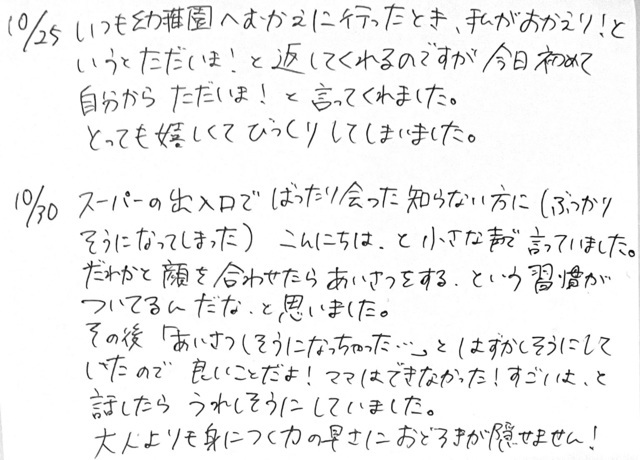 10/25 いつも幼稚園へむかえに行ったとき、私がおかえり!と
いうとただいま!と返してくれるのですが今日初めて
自分からただいま!と言ってくれました。
とっても嬉しくてびっくりしてしまいました。
10/30 スーパーの出入口でばったり会った知らない方に(ぶつかり
そうになってしまった)こんにちは、と小さな声で言っていました。
だれかと顔を合わせたらあいさつをする、という習慣が
ついてるんだな、と思いました。
その後「あいさつしそうになっちゃった…」とはずかしそうにして
いたので良いことだよ!ママはできなかった!すごいよ、と
話したらうれしそうにしていました。
大人よりも身につく力の早さにおどろきが隠せません!